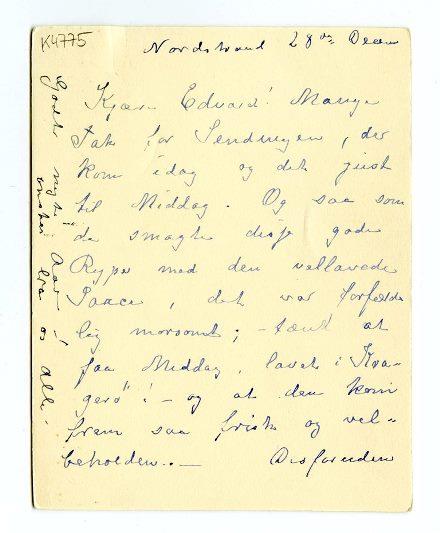 K4775
Nordstrand 28de Decem
Kjære Edvard! Mange
Tak for Sendingen, der
kom idag og det just
til Middag. Og saa som
de smagte disse gode
Ryper med den vellavede
Sauce, det var forfærde
lig morsomt; - tænk at
faa Middag, lavet i Kra-
gerø"! - og at den kom
frem saa frisk og vel-
beholden. -
Godt nytt Aar -
ønskes fra os alle.